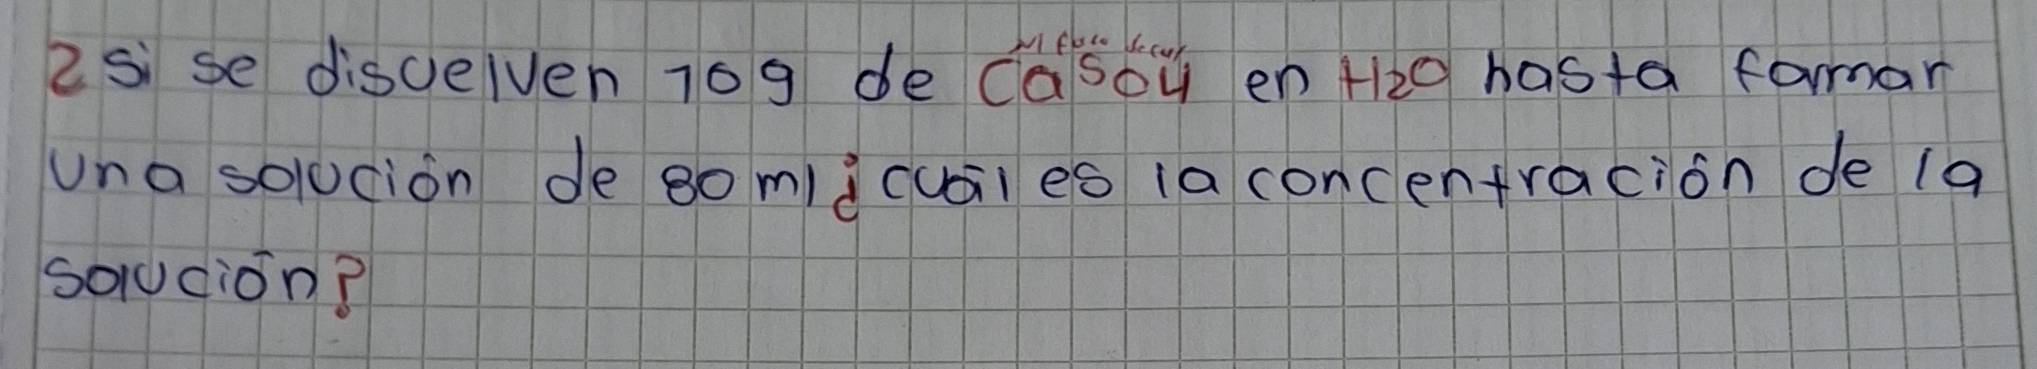 2 Si se disuelven 10g de CaSO4 en H2O hasta famar
una solución de 80 ml ¿cuál es la concentración de la
solución?